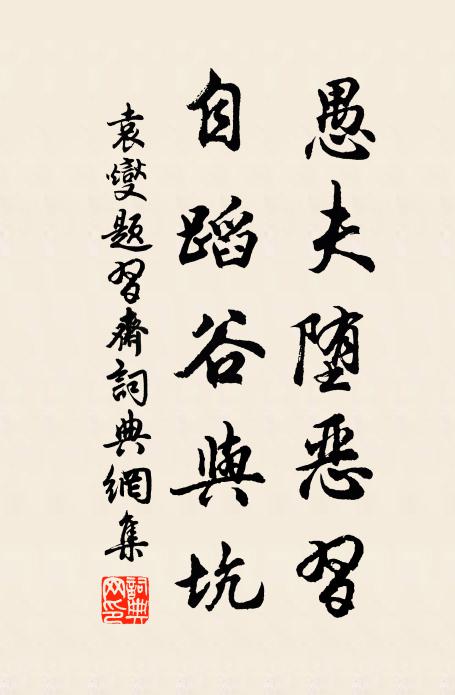 愚夫堕恶習
自蹈谷與坑
袁燮題習齋詞典網集
詞典网印